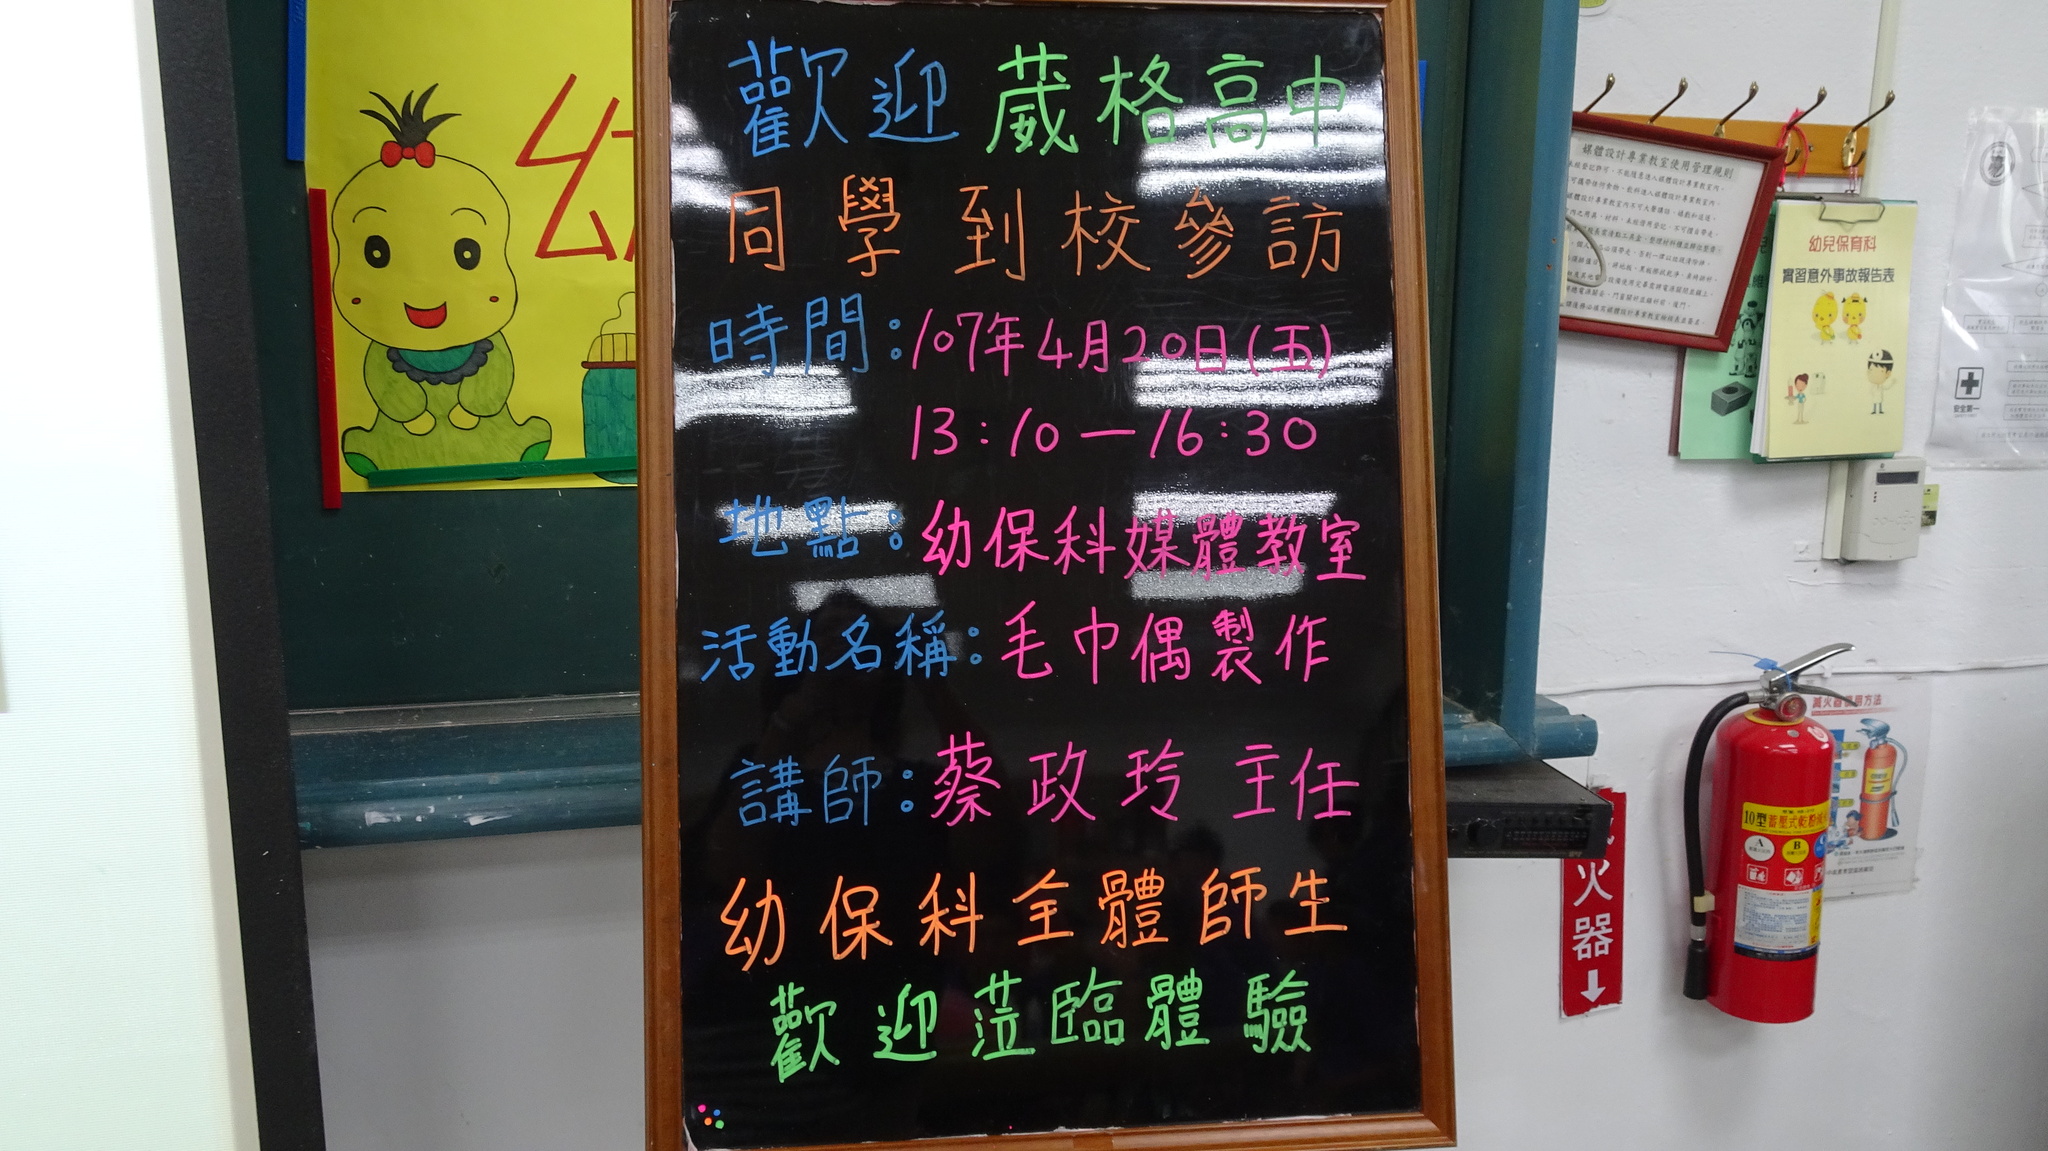 歡迎 葳格高中
同學到校參訪
時間：107年4月20日(五)
13:10－16:30
地點：幼保科媒體教室
活動名稱：毛巾偶製作
講師：蔡政玲 主任
幼保科全體師生
歡迎蒞臨體驗
幼
媒體設計專業教室使用管理規則
幼兒保育科
實習意外事故報告表
安全第一
滅火器使用方法
10型蓄壓式乾粉
A
B
火器